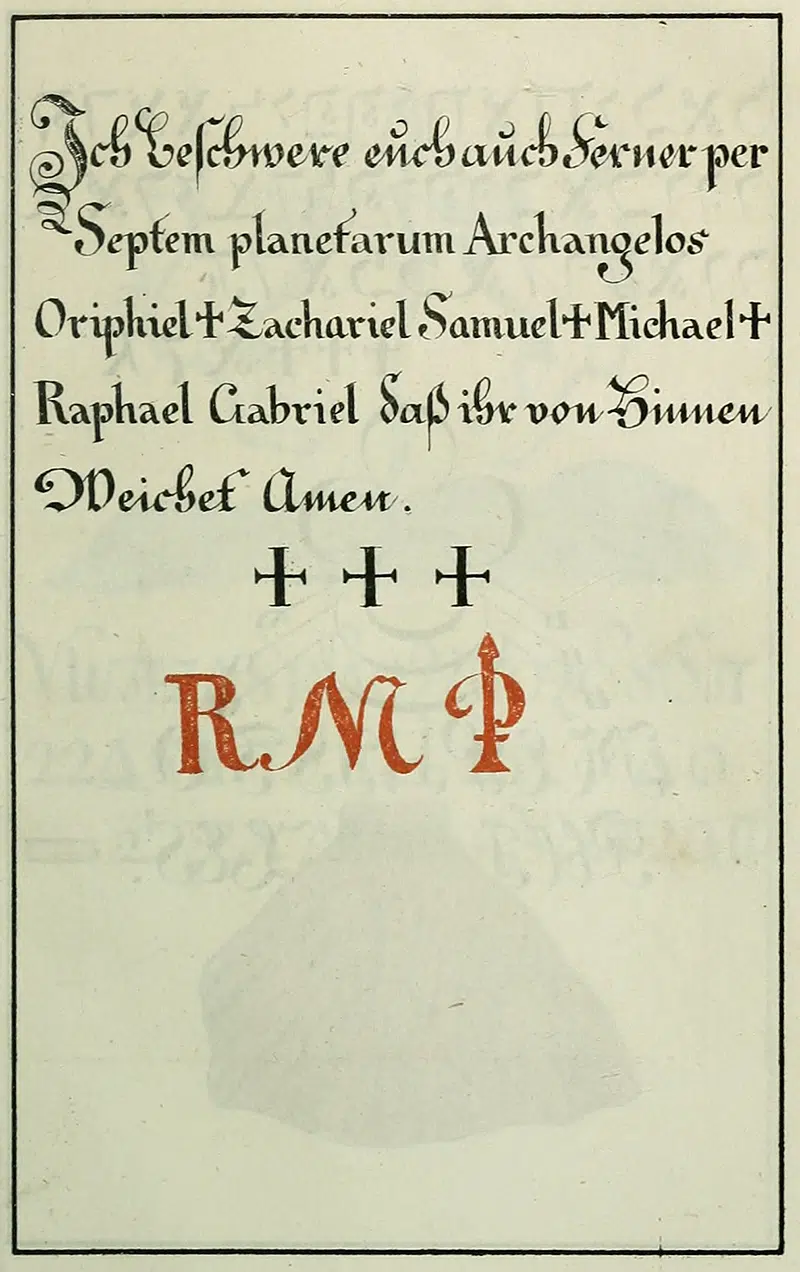 Ich beschwere eüch aüch Ferner per
Septem planetarum Archangelos
Oriphiel + Zachariel Samuel + Michael +
Raphael Gabriel daß ihr von Hinnen
Weichet Amen.
+ + +
R M P